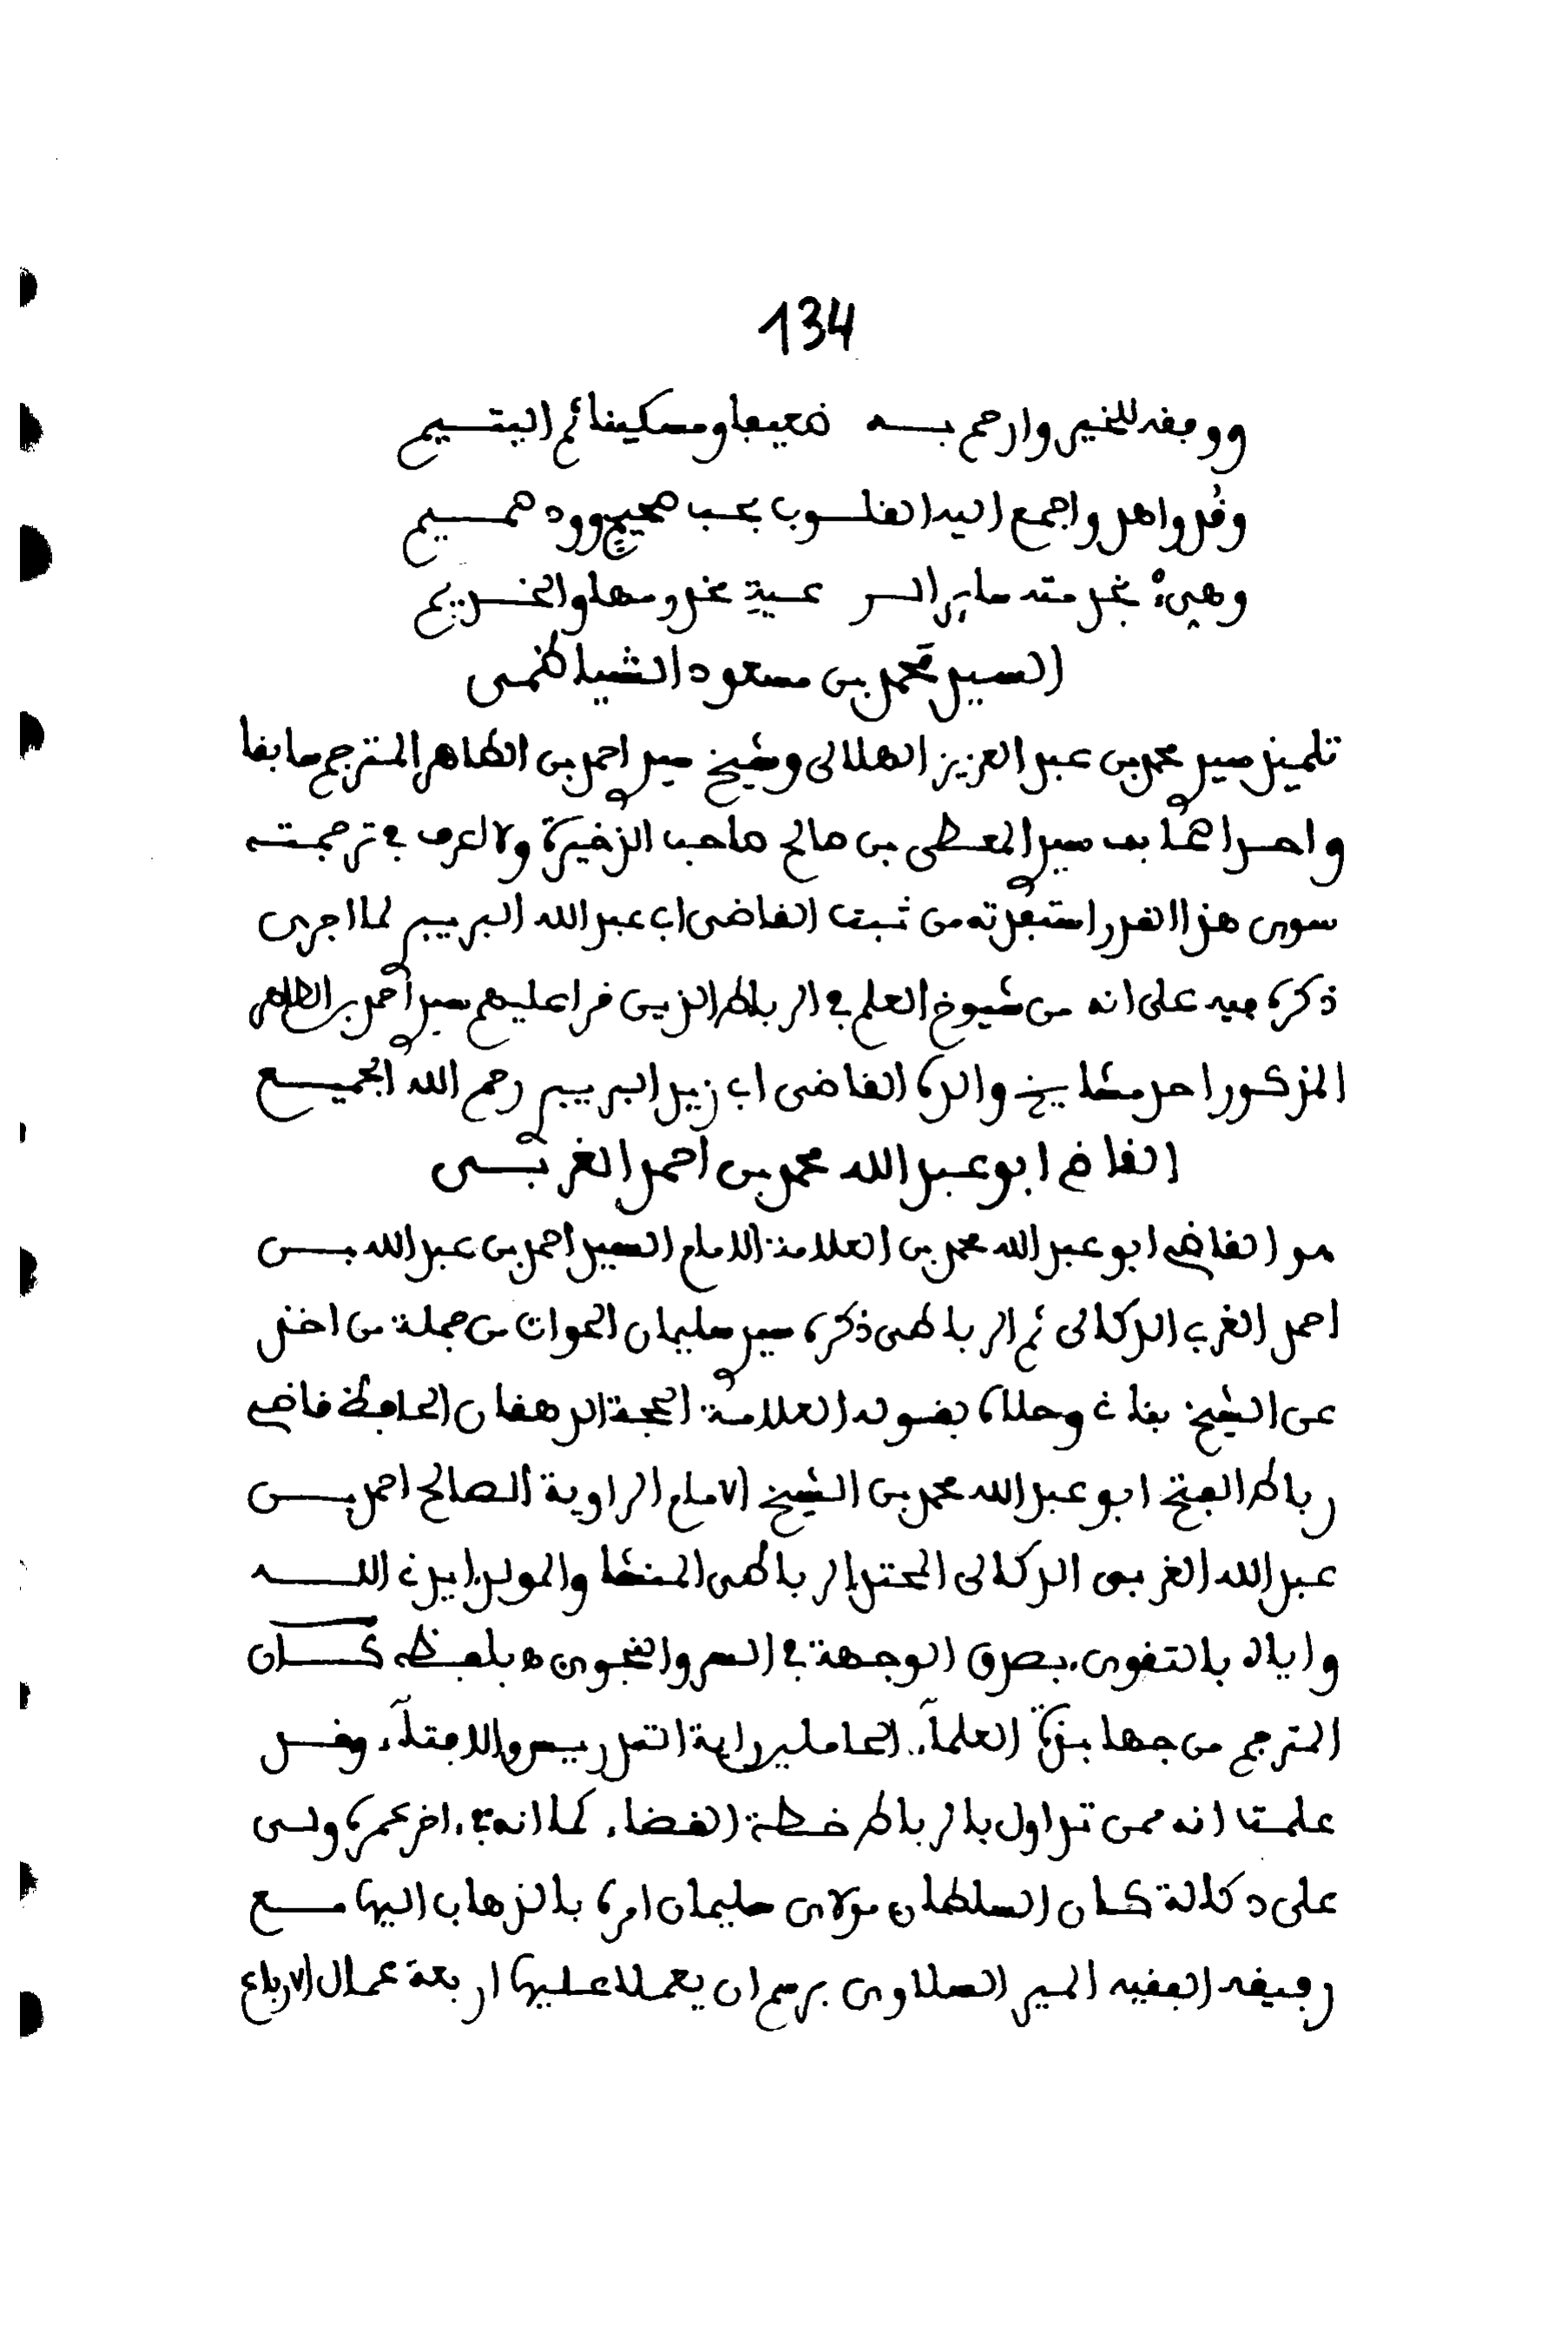 134
ووفقه للخير وارحم بـــه ضعيفا ومسكينا ثم اليتـــيم
وقُد واهد واجمع اليه القلـــوب بحب صحيح وود حمـــيم
وهيىء بخدمته سايرالـــر عـــية مخدومها والخـــديم
السيد محمد بن مسعود الشياظمى
تلميذ سيدي محمد بن عبد العزيز الهلالى وشيخ سيدي احمد بن الطاهر المترجم سابقا
واحد اصحاب سيدي المعطى بن صالح صاحب الذخيرة ولا اعرف في ترجمتــه
سوى هذا القدر استفدته من ثبت القاضى ابي عبد الله البريبري لما اجرى
ذكره فيه على انه من شيوخ العلم في الرباط الذين قرا عليهم سيدي احمد بن الطاهر
المذكور احد مشايخ والده القاضى ابي زيد البريبري رحم الله الجميـــع
القاضي ابو عبد الله محمد بن احمد الغربـــى
هو القاضي ابو عبد الله محمد بن العلامة الامام السيد احمد بن عبد الله بـــن
احمد الغربي الدكالى ثم الرباطى ذكره سيدي سليمان الحوات من جملة من اخذ
عن الشيخ بناني وحلاه بقوله العلامة الحجة الدهقان الحافظ قاضي
رباط الفتح ابو عبد الله محمد بن الشيخ الامام الراوية الصالح احمد بـــن
عبد الله الغربى الدكالى المحتد الرباطى المنشا والمولد ايدني اللـــه
واياه بالتقوى، بصدق الوجهة في السر والنجوى ه بلفظه كـــان
المترجم من جهابذة العلمآء، الحاملين راية التدريس والافتآء، وقـــد
علمت انه ممن تداول بالرباط خطة القضاء، كما انه في ءاخر عمره ولـــى
على دكالة كان السلطان مولاى سليمان امره بالذهاب اليها مـــع
رفيقه الفقيه المير السلاوى برسم ان يعملا عليها اربعة عمال الارباع